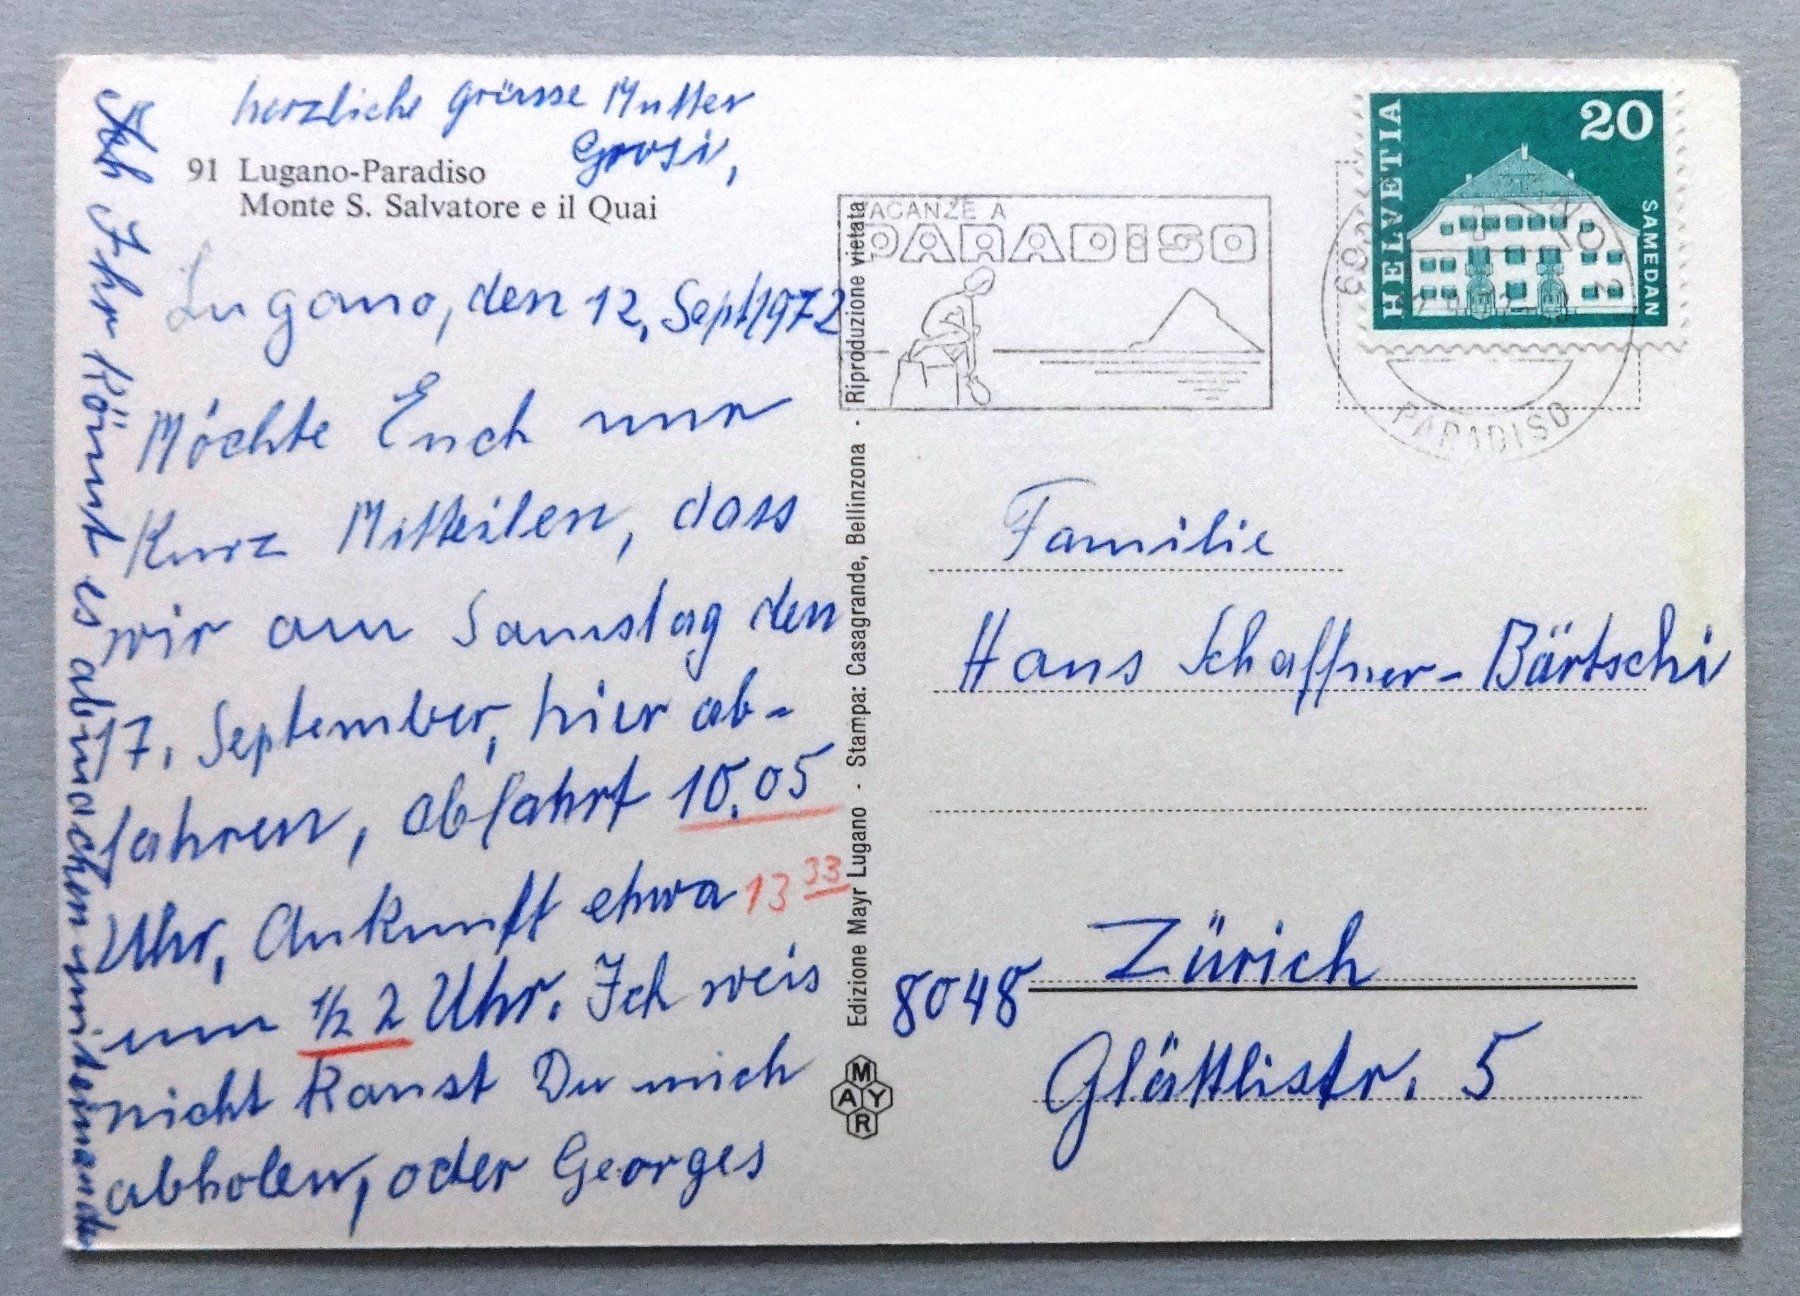 herzliche grüsse Mutter
Grosi,
91 Lugano-Paradiso
Monte S. Salvatore e il Quai
Lugano, den 12, Sept 1972
Möchte Euch nur
Kurz Mitteilen, dass
wir am Samstag den
17. September, hier ab-
fahren, abfahrt 10.05
Uhr, Ankunft etwa 13 33
um 1/2 2 Uhr. Ich weis
nicht kanst Du mich
abholen, oder Georges
Ihr könnt es abmachen miteinander
Edizione Mayr Lugano · Stampa: Casagrande, Bellinzona · Riproduzione vietata
MAYR
VACANZE A
PARADISO
HELVETIA
20
SAMEDAN
PARADISO
Familie
Hans Schaffner-Bärtschi
8048 Zürich
Glättlistr. 5